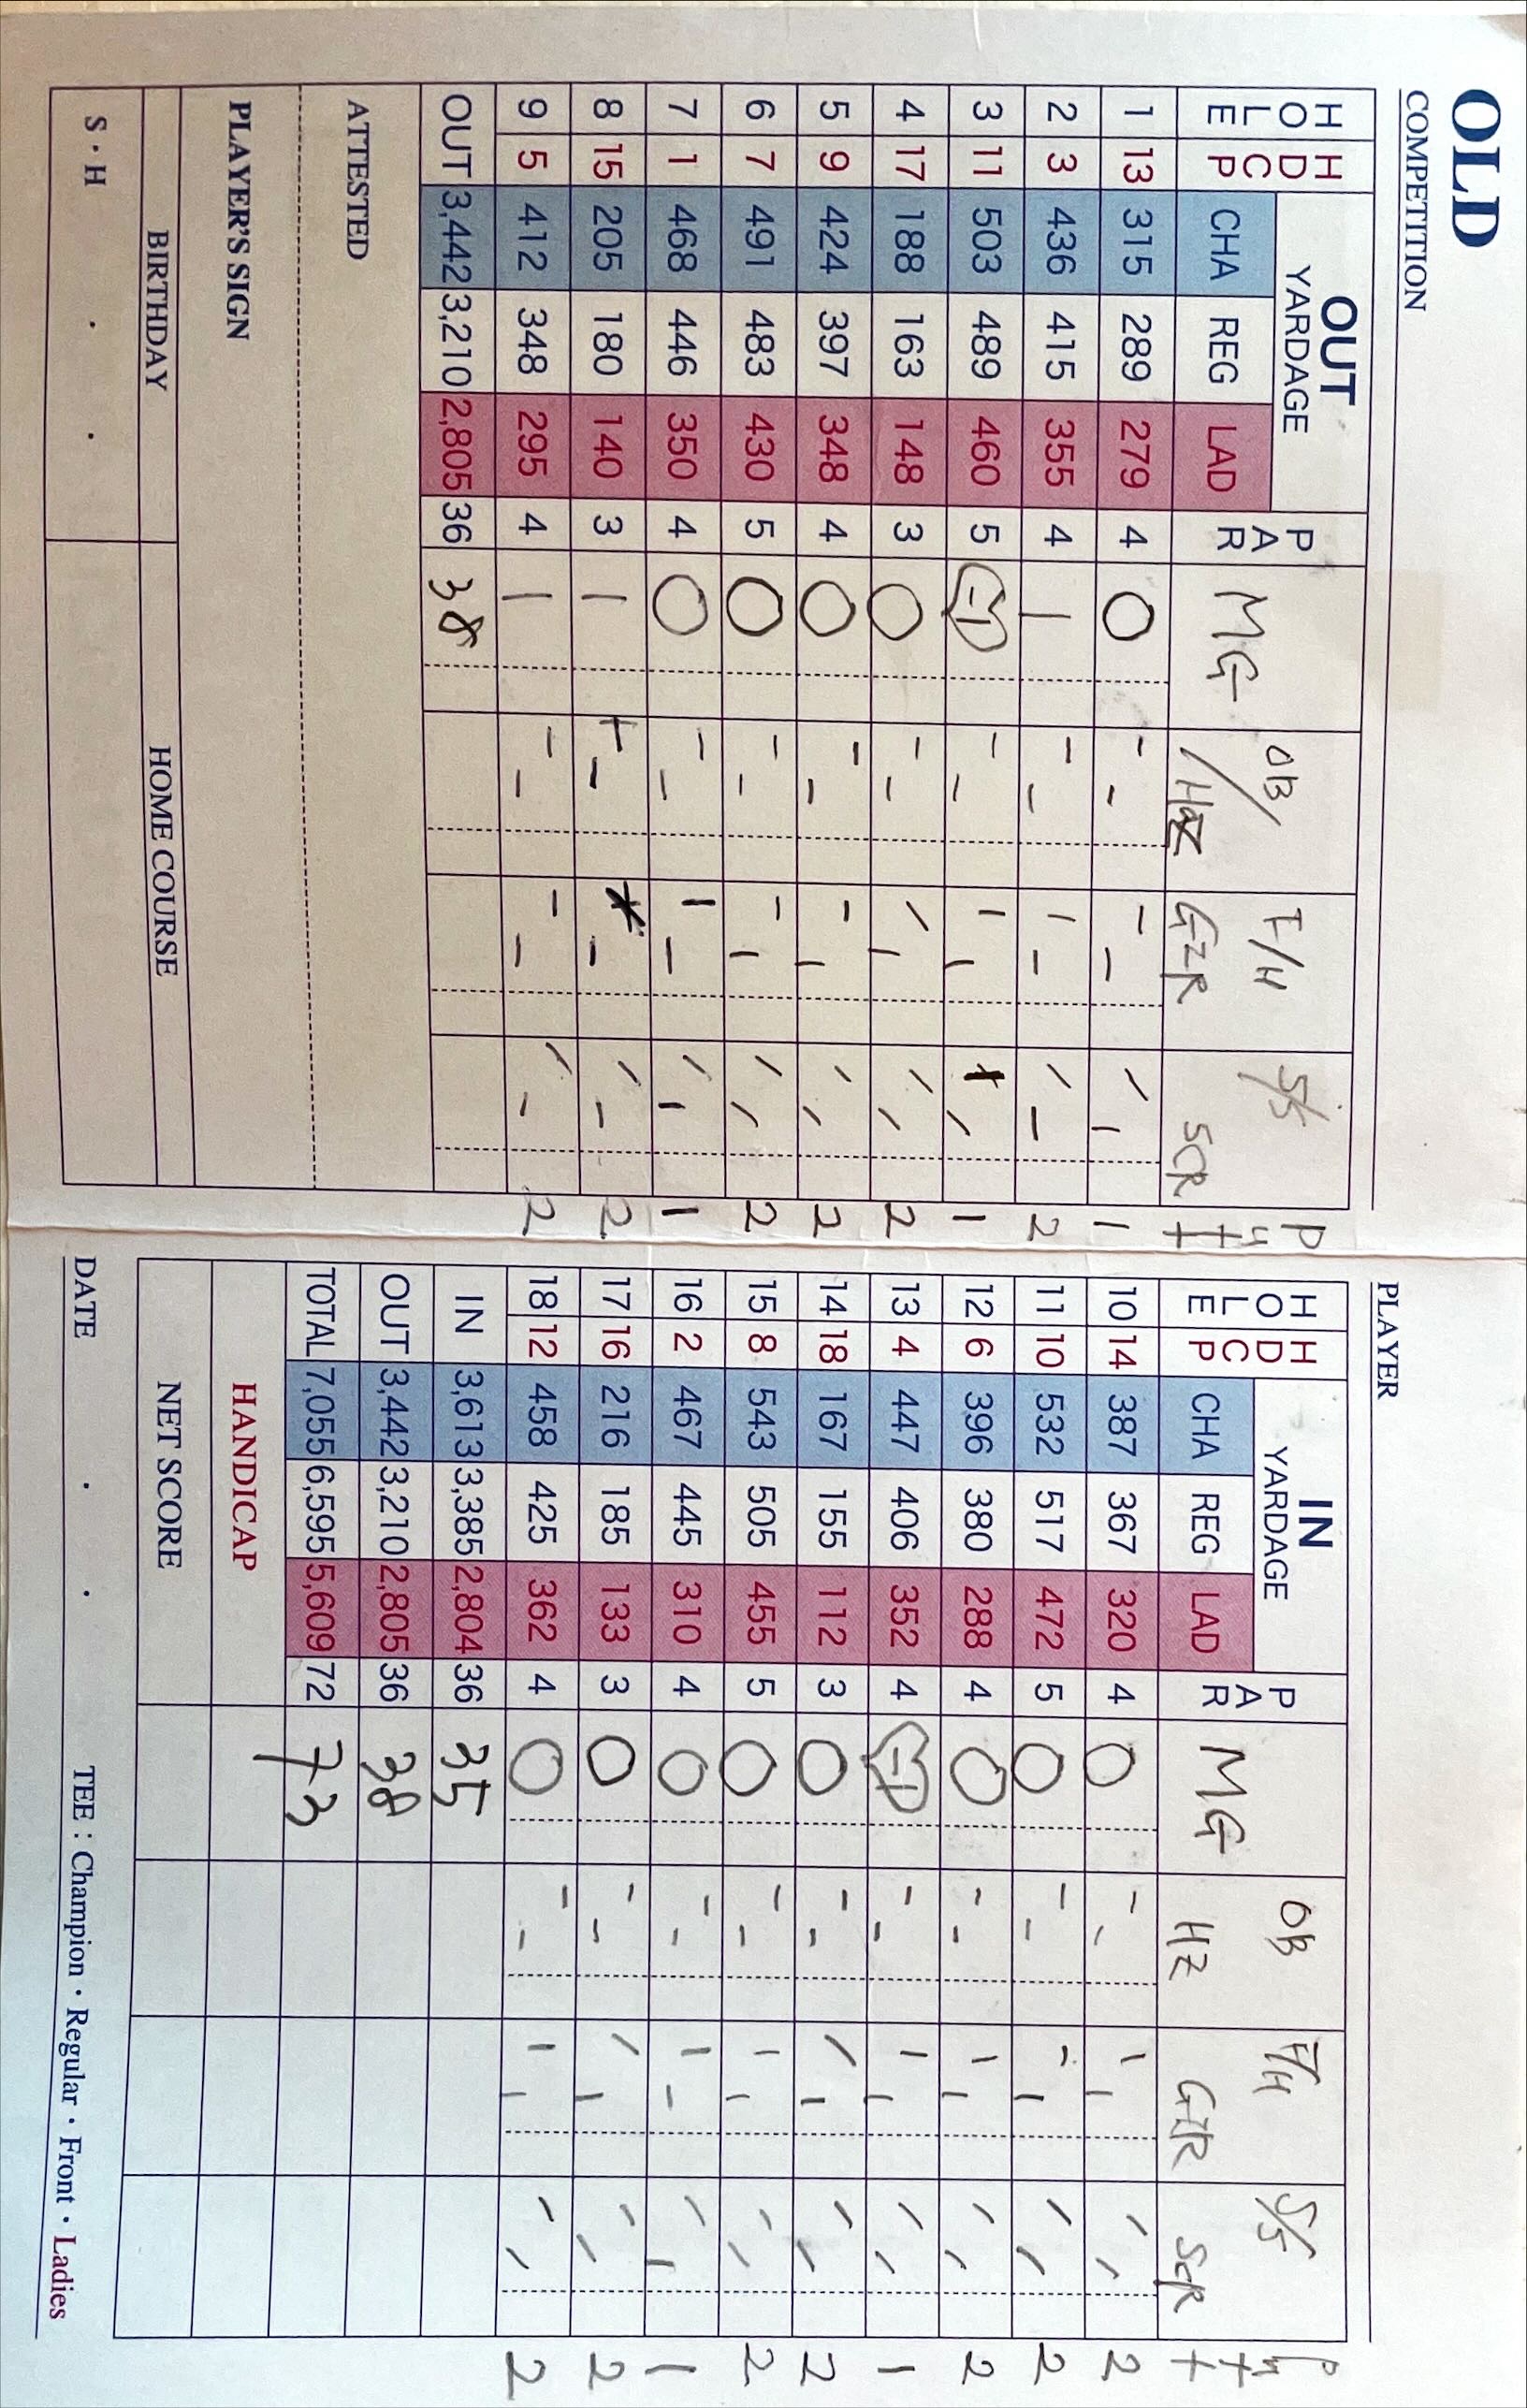 OLD
COMPETITION
HOLE HDCP OUT YARDAGE CHA REG LAD PAR MG OB/Haz F/H GIR S/S SCR Putt
1 13 315 289 279 4 ○ - - - - / - 1
2 3 436 415 355 4 | - - - - / - 2
3 11 503 489 460 5 -1 - - - | / 1
4 17 188 163 148 3 ○ - - / | / / 2
5 9 424 397 348 4 ○ - - - | / / 2
6 7 491 483 430 5 ○ - - - | / / 2
7 1 468 446 350 4 ○ - - - - / - 1
8 15 205 180 140 3 | + - - / - 2
9 5 412 348 295 4 | - - - - / - 2
OUT 3,442 3,210 2,805 36 38
ATTESTED
PLAYER'S SIGN
BIRTHDAY HOME COURSE
S・H ． ．
PLAYER
HOLE HDCP IN YARDAGE CHA REG LAD PAR MG OB HZ F/H GIR S/S SCR Putt
10 14 387 367 320 4 ○ - - - | / / 2
11 10 532 517 472 5 ○ - - - | / / 2
12 6 396 380 288 4 ○ - - - | / / 2
13 4 447 406 352 4 -1 - - - | / / 1
14 18 167 155 112 3 ○ - - / | / / 2
15 8 543 505 455 5 ○ - - - | / / 2
16 2 467 445 310 4 ○ - - - - / | 1
17 16 216 185 133 3 ○ - - / | / / 2
18 12 458 425 362 4 ○ - - - | / / 2
IN 3,613 3,385 2,804 36 35
OUT 3,442 3,210 2,805 36 38
TOTAL 7,055 6,595 5,609 72 73
HANDICAP
NET SCORE
DATE ． ． TEE : Champion・Regular・Front・Ladies